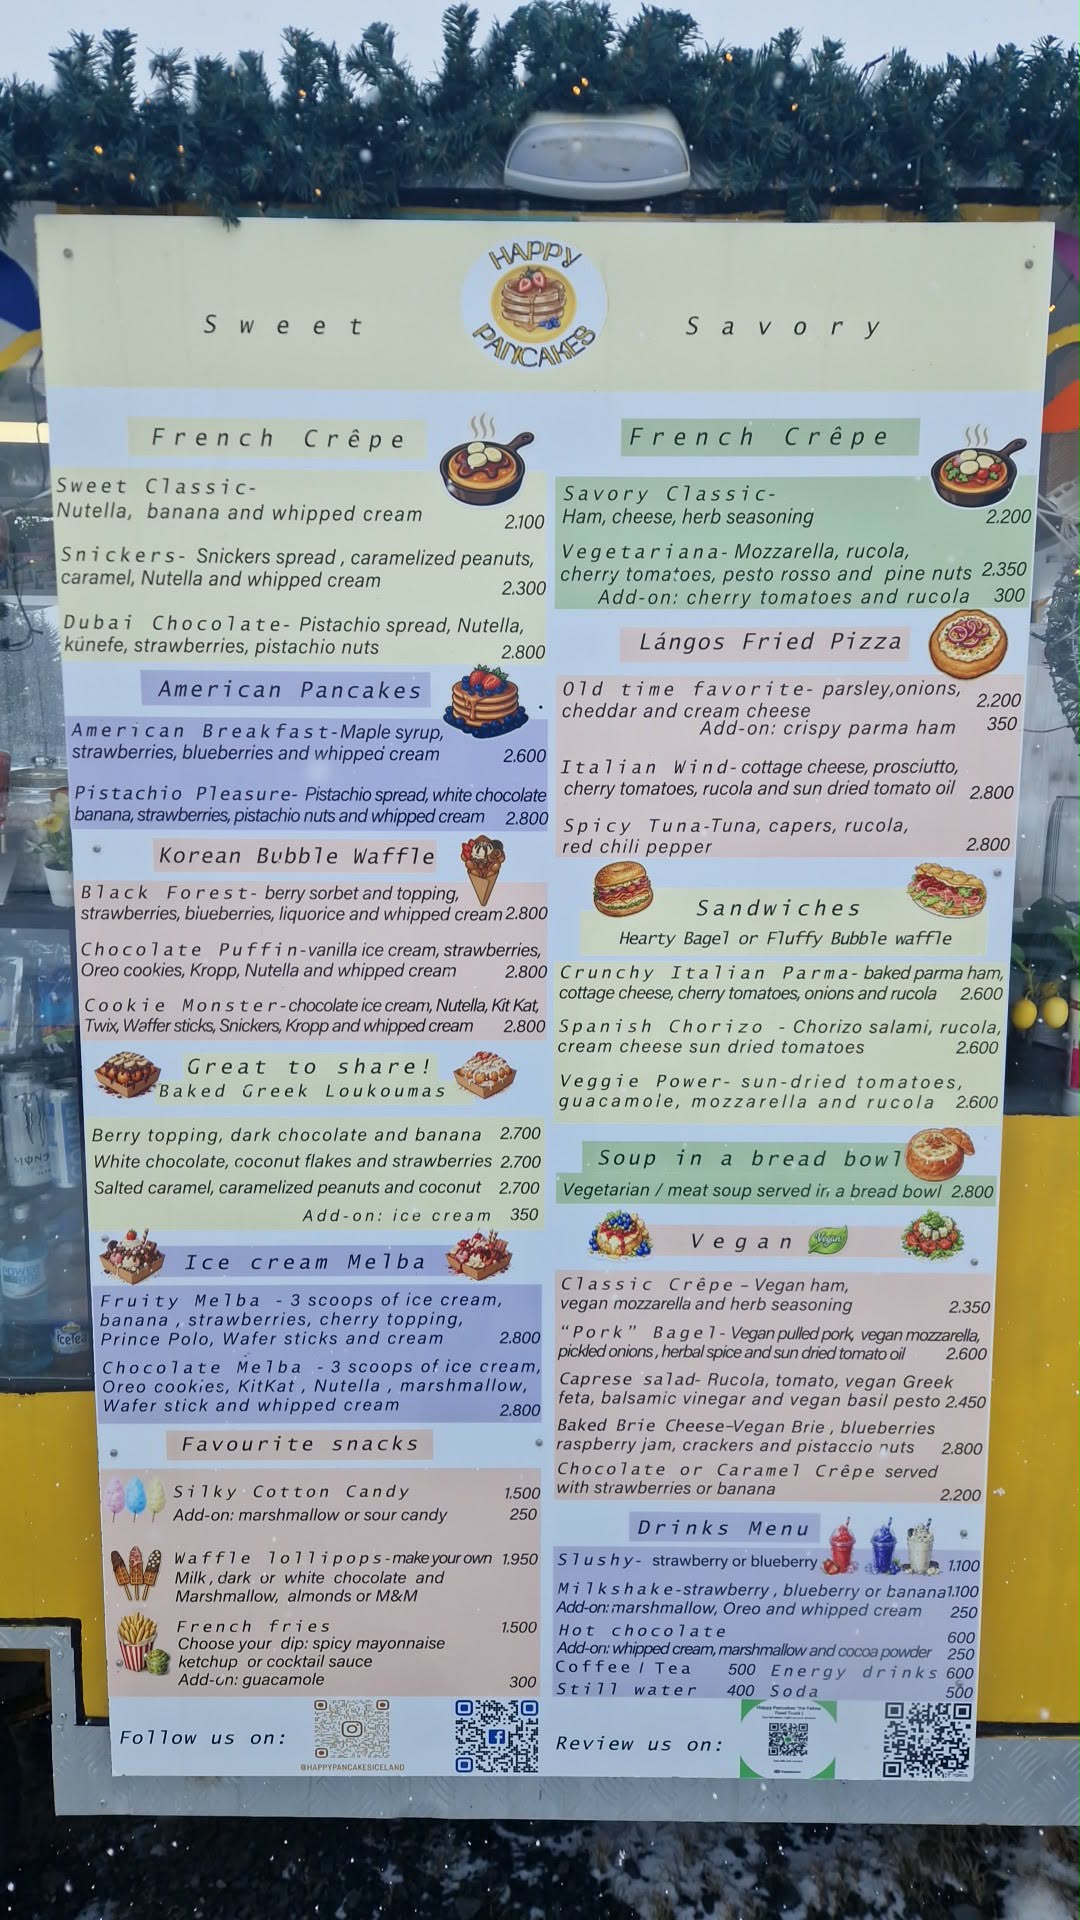 HAPPY
PANCAKES
Sweet
Savory
French Crêpe
Sweet Classic-
Nutella, banana and whipped cream 2.100
Snickers- Snickers spread, caramelized peanuts,
caramel, Nutella and whipped cream 2.300
Dubai Chocolate- Pistachio spread, Nutella,
künefe, strawberries, pistachio nuts 2.800
American Pancakes
American Breakfast-Maple syrup,
strawberries, blueberries and whipped cream 2.600
Pistachio Pleasure- Pistachio spread, white chocolate
banana, strawberries, pistachio nuts and whipped cream 2.800
Korean Bubble Waffle
Black Forest- berry sorbet and topping,
strawberries, blueberries, liquorice and whipped cream 2.800
Chocolate Puffin-vanilla ice cream, strawberries,
Oreo cookies, Kropp, Nutella and whipped cream 2.800
Cookie Monster-chocolate ice cream, Nutella, Kit Kat,
Twix, Waffer sticks, Snickers, Kropp and whipped cream 2.800
Great to share!
Baked Greek Loukoumas
Berry topping, dark chocolate and banana 2.700
White chocolate, coconut flakes and strawberries 2.700
Salted caramel, caramelized peanuts and coconut 2.700
Add-on: ice cream 350
Ice cream Melba
Fruity Melba -3 scoops of ice cream,
banana, strawberries, cherry topping,
Prince Polo, Wafer sticks and cream 2.800
Chocolate Melba -3 scoops of ice cream,
Oreo cookies, KitKat, Nutella, marshmallow,
Wafer stick and whipped cream 2.800
Favourite snacks
Silky Cotton Candy 1.500
Add-on: marshmallow or sour candy 250
Waffle lollipops-make your own 1.950
Milk, dark or white chocolate and
Marshmallow, almonds or M&M
French fries 1.500
Choose your dip: spicy mayonnaise
ketchup or cocktail sauce
Add-on: guacamole 300
Follow us on:
@HAPPYPANCAKESICELAND
French Crêpe
Savory Classic-
Ham, cheese, herb seasoning 2.200
Vegetariana- Mozzarella, rucola,
cherry tomatoes, pesto rosso and pine nuts 2.350
Add-on: cherry tomatoes and rucola 300
Lángos Fried Pizza
Old time favorite- parsley,onions,
cheddar and cream cheese 2.200
Add-on: crispy parma ham 350
Italian Wind- cottage cheese, prosciutto,
cherry tomatoes, rucola and sun dried tomato oil 2.800
Spicy Tuna-Tuna, capers, rucola,
red chili pepper 2.800
Sandwiches
Hearty Bagel or Fluffy Bubble waffle
Crunchy Italian Parma- baked parma ham,
cottage cheese, cherry tomatoes, onions and rucola 2.600
Spanish Chorizo - Chorizo salami, rucola,
cream cheese sun dried tomatoes 2.600
Veggie Power- sun-dried tomatoes,
guacamole, mozzarella and rucola 2.600
Soup in a bread bowl
Vegetarian / meat soup served in a bread bowl 2.800
Vegan
Vegan
Classic Crêpe – Vegan ham,
vegan mozzarella and herb seasoning 2.350
“Pork” Bagel- Vegan pulled pork, vegan mozzarella,
pickled onions, herbal spice and sun dried tomato oil 2.600
Caprese salad- Rucola, tomato, vegan Greek
feta, balsamic vinegar and vegan basil pesto 2.450
Baked Brie Cheese-Vegan Brie, blueberries
raspberry jam, crackers and pistaccio nuts 2.800
Chocolate or Caramel Crêpe served
with strawberries or banana 2.200
Drinks Menu
Slushy- strawberry or blueberry 1.100
Milkshake-strawberry, blueberry or banana 1.100
Add-on: marshmallow, Oreo and whipped cream 250
Hot chocolate 600
Add-on: whipped cream, marshmallow and cocoa powder 250
Coffee / Tea 500 Energy drinks 600
Still water 400 Soda 500
Review us on: